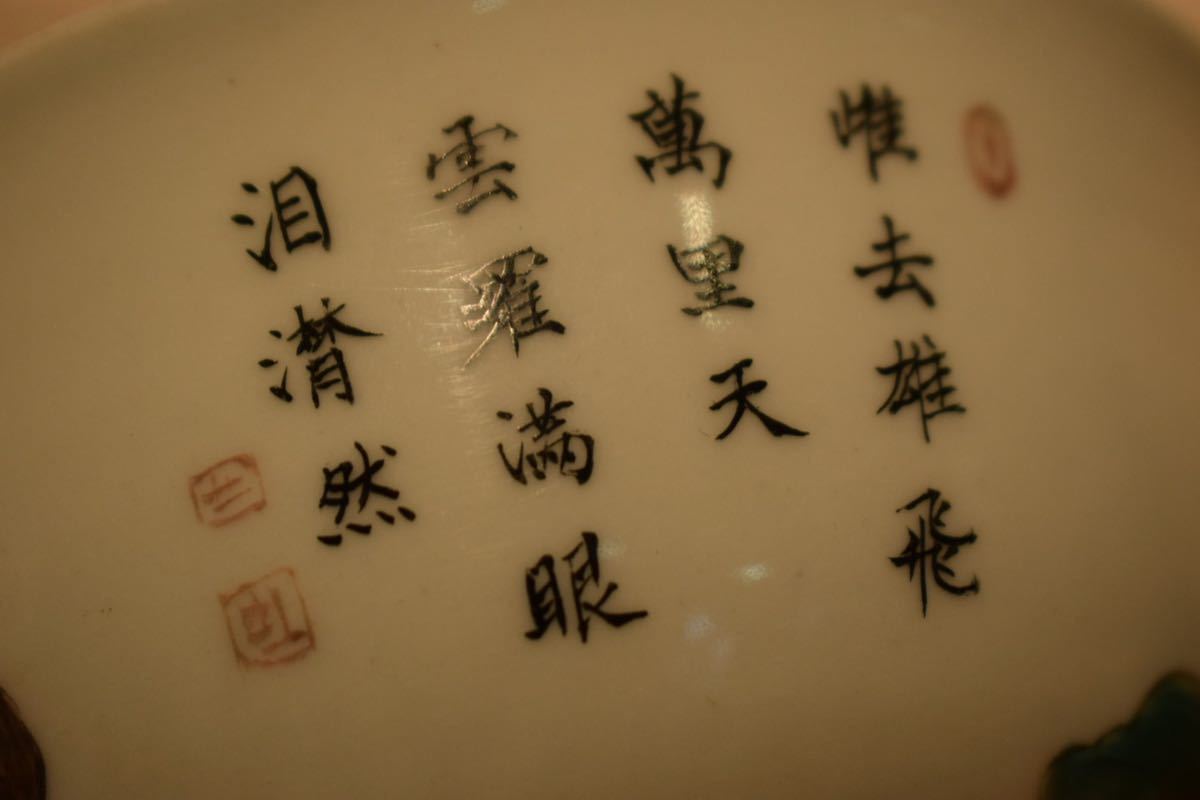 惟去雄飛
萬里天
雲羅滿眼
泪潸然